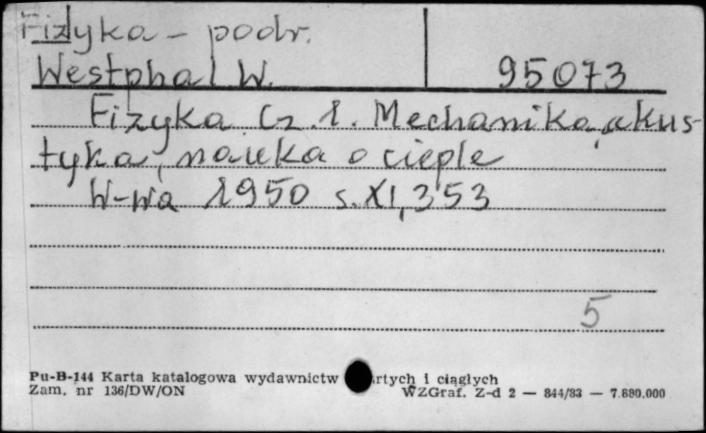 Fizyka - podr.
Westphal W. 95073
Fizyka Cz. 1. Mechanika, akus-
tyka, nauka o cieple
W-wa 1950 s. XI, 353
5
Pu-B-144 Karta katalogowa wydawnictw rtych i ciągłych
Zam. nr 136/DW/ON WZGraf. Z-d 2 — 844/83 — 7.880.000